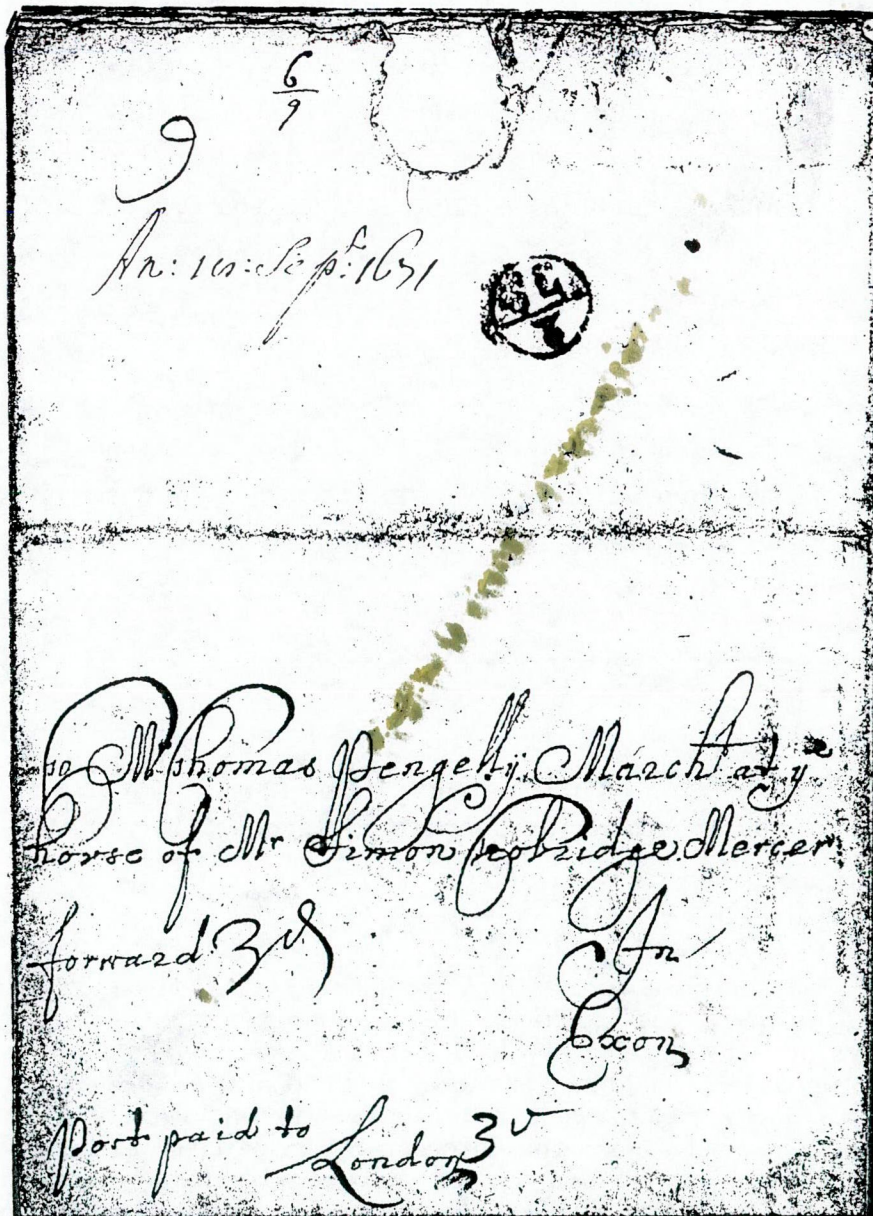 6
9
9
An: Sepr: 1671
SE
7
Mr Thomas Pengelly Marcht at ye
house of Mr Simon Mercer
forward 3d
In
Exon
Post paid to London 3d